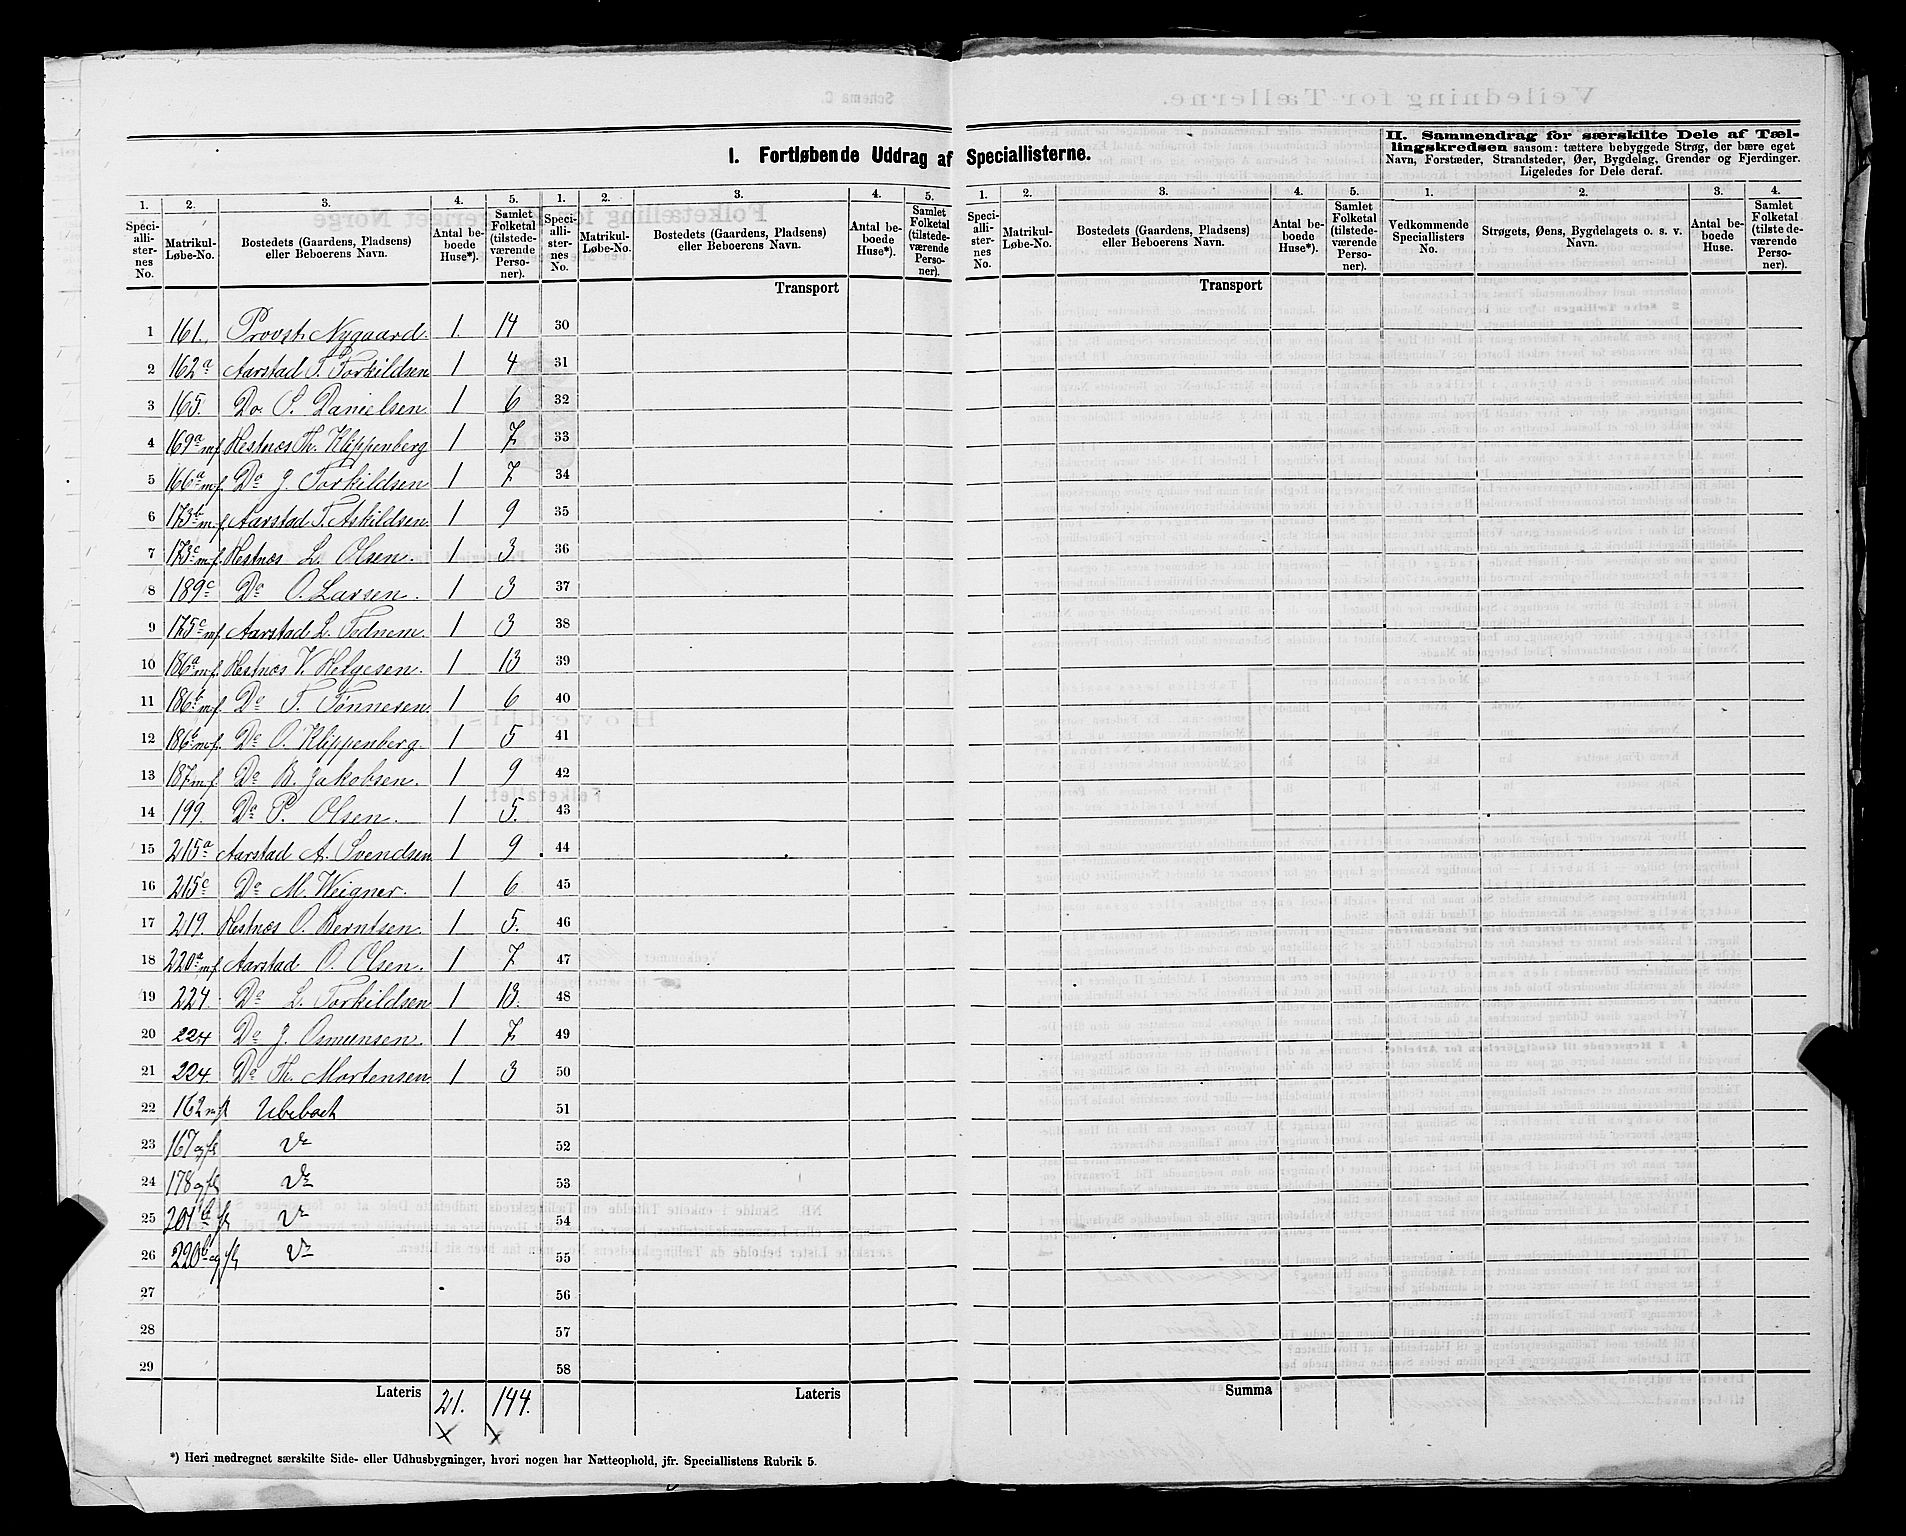 I. Fortløbende Uddrag af Speciallisterne.
II. Sammendrag for særskilte Dele af Tællingskredsen sansom: tættere bebyggede Strøg, der bære eget
Navn, Forstæder, Strandsteder, Øer, Bygdelag, Grender og Fjerdinger.
Ligeledes for Dele deraf.
1. 2. 3. 4. 5. 1. 2. 3. 4. 5. 1. 2. 3. 4. 5. 1. 2. 3. 4.
Speciallisternes No. Matrikul-Løbe-No. Bostedets (Gaardens, Pladsens) eller Beboerens Navn. Antal beboede Huse*). Samlet Folketal (tilstedeværende Personer).
Speciallisternes No. Matrikul-Løbe-No. Bostedets (Gaardens, Pladsens) eller Beboerens Navn. Antal beboede Huse*). Samlet Folketal (tilstedeværende Personer).
Speciallisternes No. Matrikul-Løbe-No. Bostedets (Gaardens, Pladsens) eller Beboerens Navn. Antal beboede Huse*). Samlet Folketal (tilstedeværende Personer).
Vedkommende Speciallisters No. Strøgets, Øens, Bygdelagets o. s. v. Navn. Antal beboede Huse. Samlet Folketal (tilstedeværende Personer).
Transport Transport
1 161. Provst Nygaard. 1. 14 30
2 162a Aarstad T. Torkildsen 1 4 31
3 165. Do. P. Danielsen 1 6 32
4 169a m.f. Hestnæs Th. Klippenberg 1 7 33
5 166a m.f. Do J. Torkildsen 1 7 34
6 173b m.f. Aarstad T. Askildsen. 1 9 35
7 173c m.f. Hestnæs L. Olsen. 1 3 36
8 189c Do O. Larsen. 1 3 37
9 175c m.f. Aarstad L. Tednem. 1 3 38
10 186a m.f. Hestnæs V. Helgesen. 1 13 39
11 186c m.f. Do T. Tønnesen. 1 6 40
12 186b m.f. Do O. Klippenberg. 1 5 41
13 187 m.f. Do B. Jakobsen. 1 9 42
14 199. Do P. Olsen. 1 5. 43
15 215a Aarstad A. Svendsen 1 9 44
16 215c Do M. Weigner. 1 6 45
17 219. Hestnæs O. Berntsen. 1 5. 46
18 220a m.f. Aarstad O. Olsen. 1 7 47
19 224. Do L. Torkildsen 1 13. 48
20 224 Do J. Osmunsen. 1 7 49
21 224. Do Th. Mortensen 1 3 50
22 162 m fl Ubeboet 51
23 167 og fl Do 52
24 178 og fl Do 53
25 201b fl Do 54
26 220b og fl Do 55
27 56
28 57
29 58
Lateris 21. 144. Lateris Summa
*) Heri medregnet særskilte Side- eller Udhusbygninger, hvori nogen har Natteophold, jfr. Speciallistens Rubrik 5.